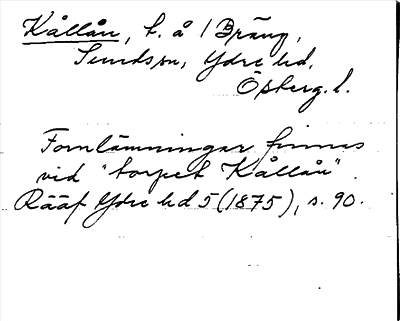 Kållån, t. å / Bräng,
Sunds sn, Ydre hd,
Österg. l.
Fornlämningar finnas
vid "torpet Kållån".
Rääf Ydre hd 5 (1875), s. 90.